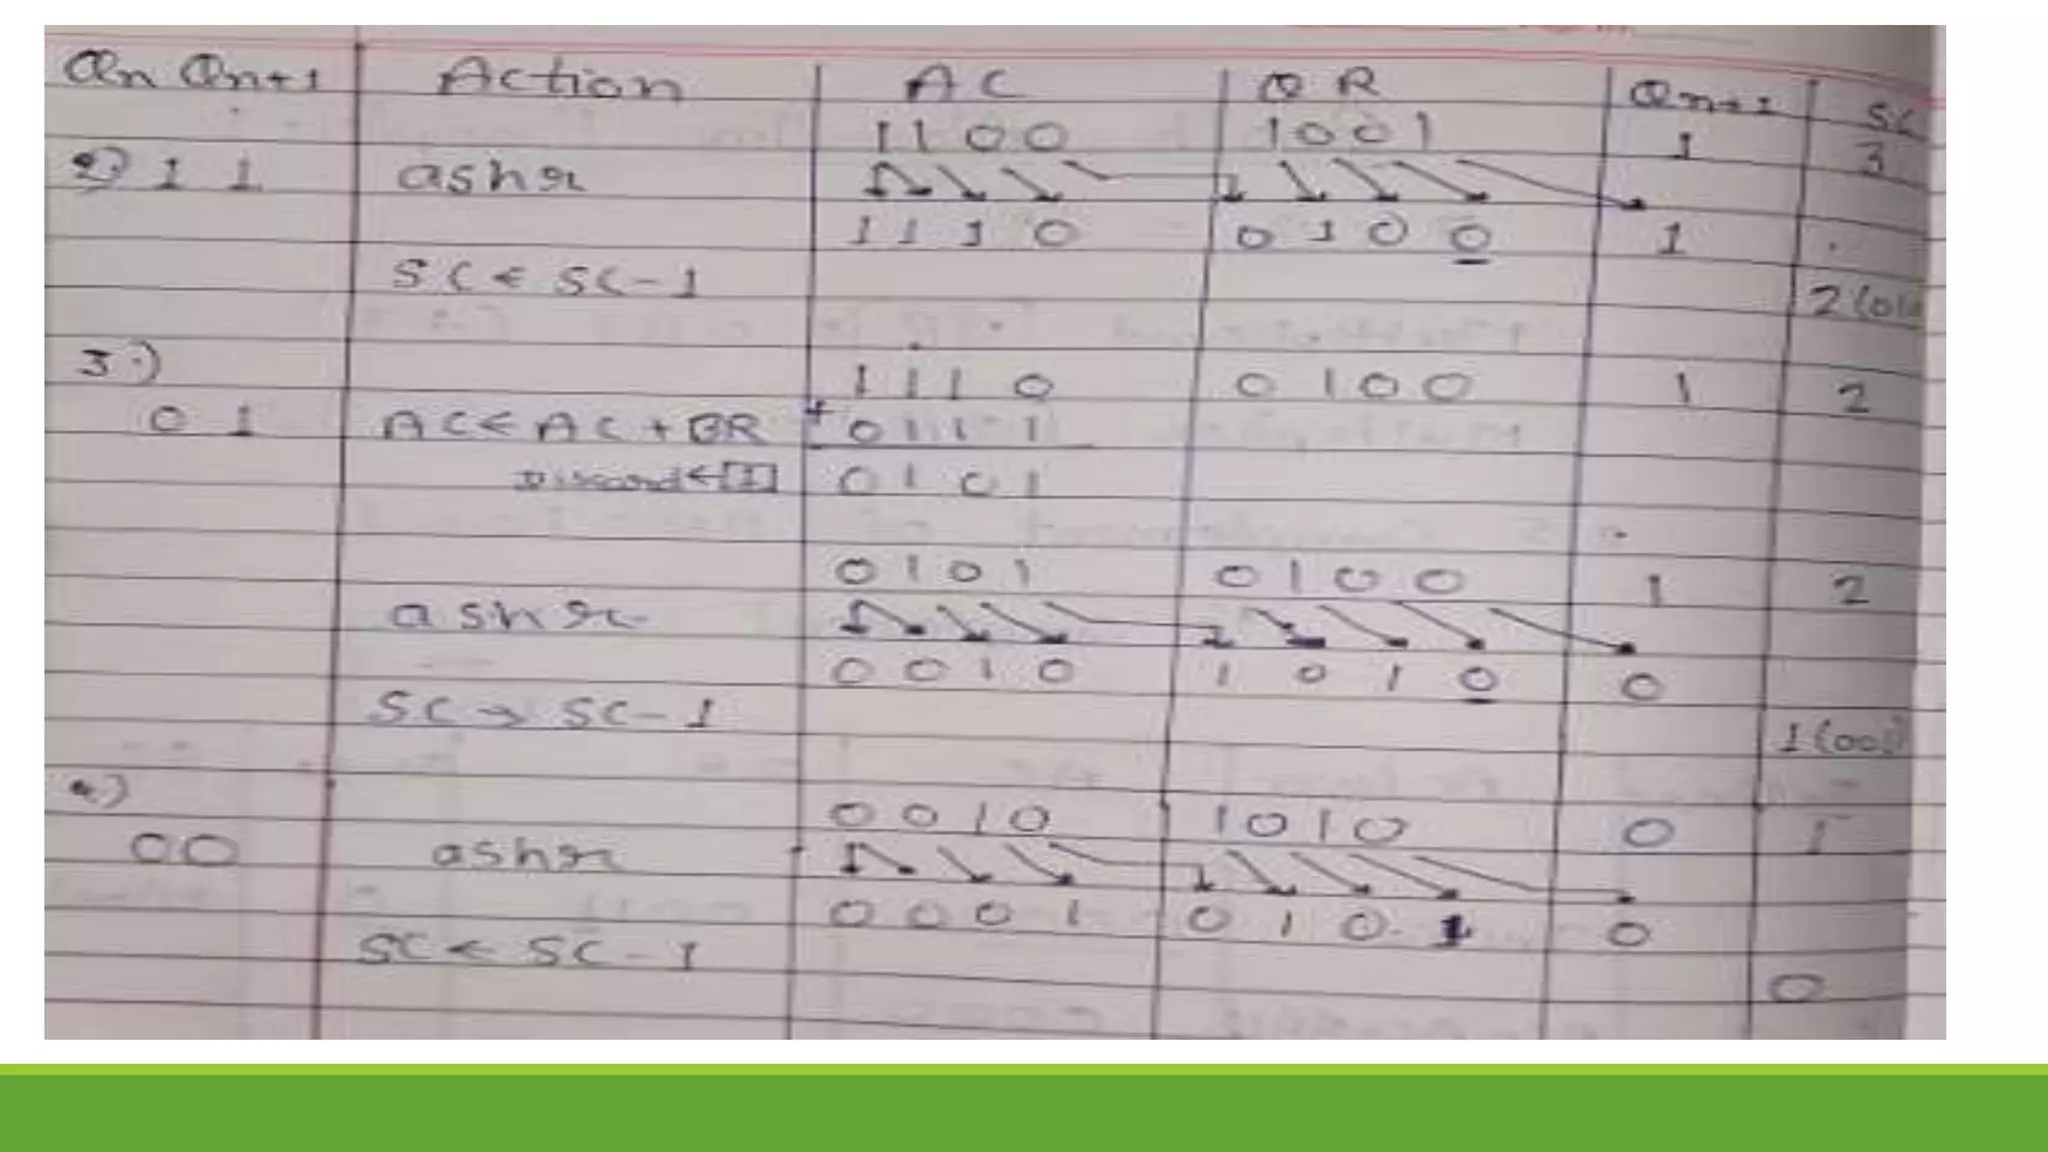 Qn Qn+1 Action AC QR Qn+1 SC
1100 1001 1 3
2) 1 1 ashr
1110 0100 1
SC ← SC-1
2(010
3.)
1110 0100 1 2
0 1 AC ← AC + BR + 0111
Discard ← [1] 0101
0101 0100 1 2
ashr
0010 1010 0
SC → SC-1
1(001)
4.)
0010 1010 0 1
00 ashr
0001 0101 0
SC ← SC-1
0